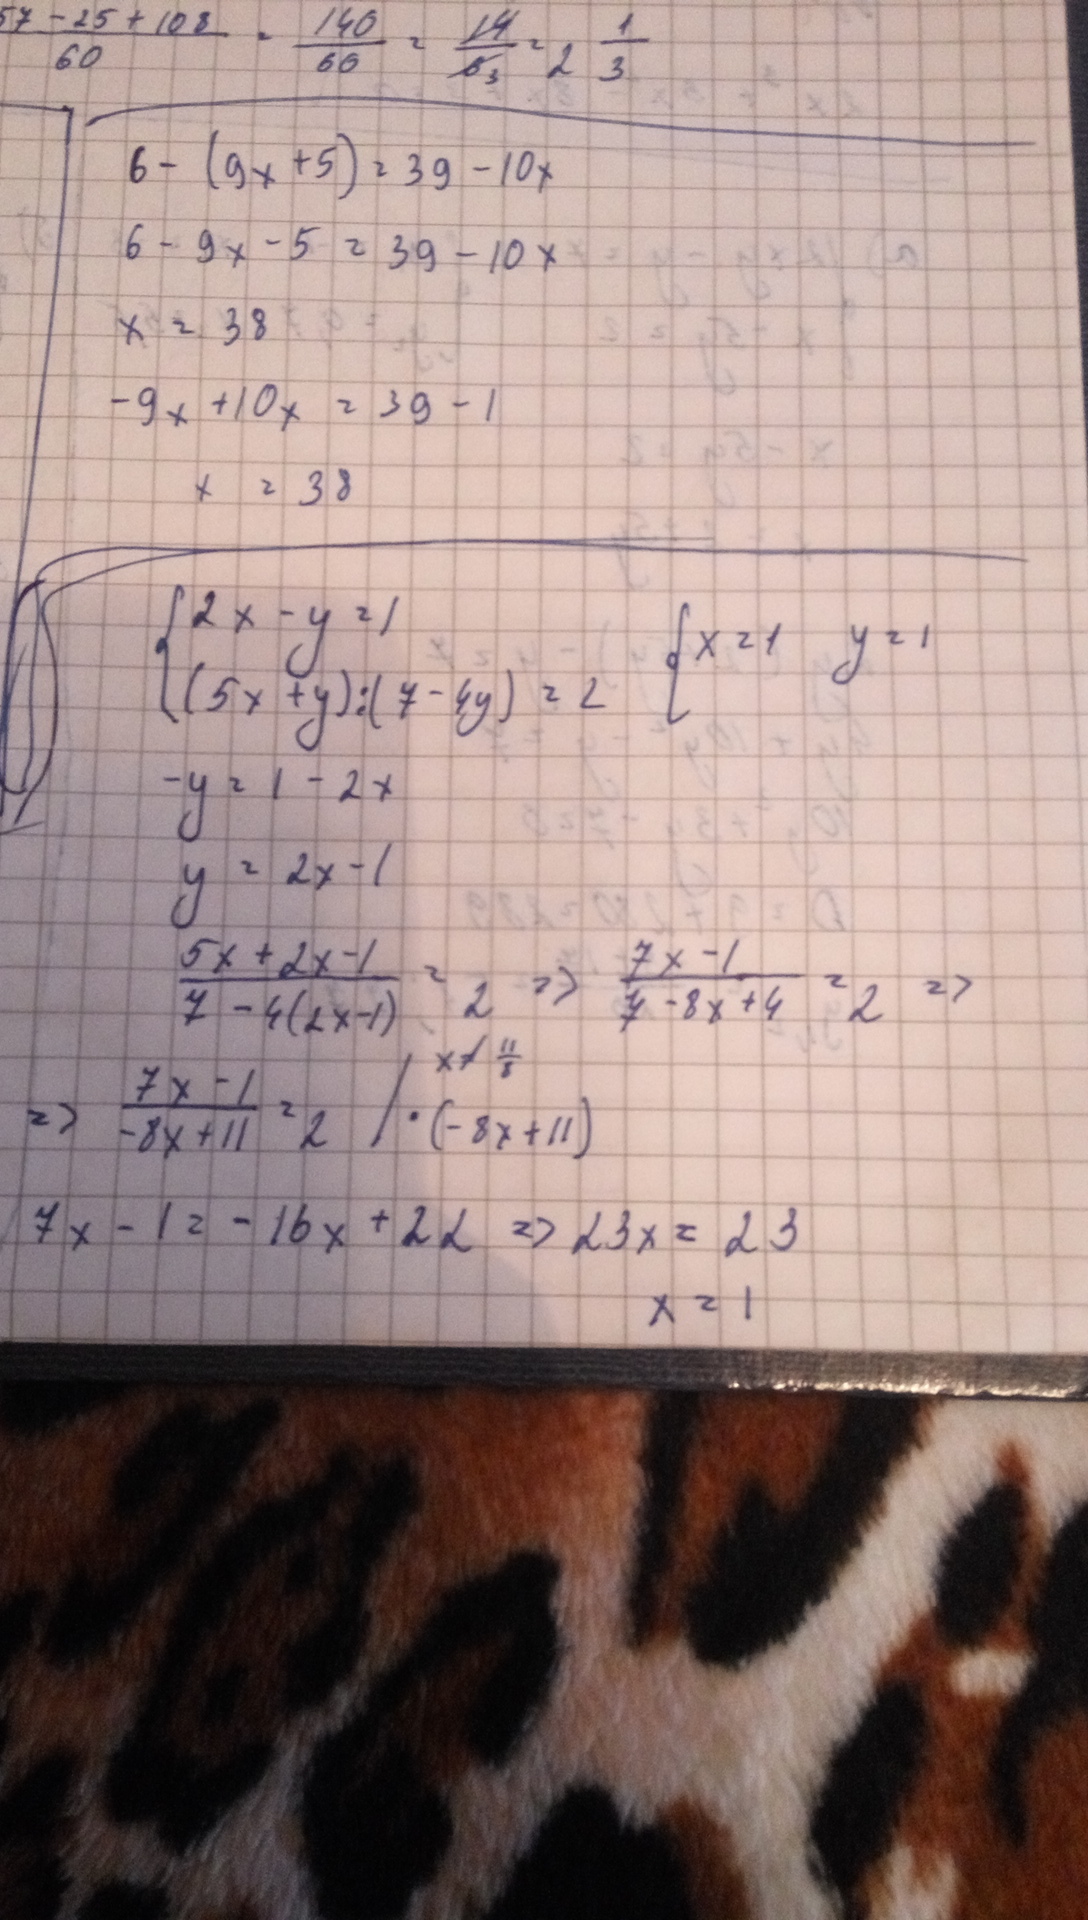 57 - 25 + 108 / 60 = 140 / 60 = 14 / 6 3 = 2 1/3
6 - (9x + 5) = 39 - 10x
6 - 9x - 5 = 39 - 10x
x = 38
-9x + 10x = 39 - 1
x = 38
{ 2x - y = 1
(5x + y) : (7 - 4y) = 2 { x = 1 y = 1
-y = 1 - 2x
y = 2x - 1
5x + 2x - 1 / 7 - 4(2x - 1) = 2 => 7x - 1 / 7 - 8x + 4 = 2 =>
x ≠ 11/8
=> 7x - 1 / -8x + 11 = 2 / · (-8x + 11)
7x - 1 = -16x + 22 => 23x = 23
x = 1